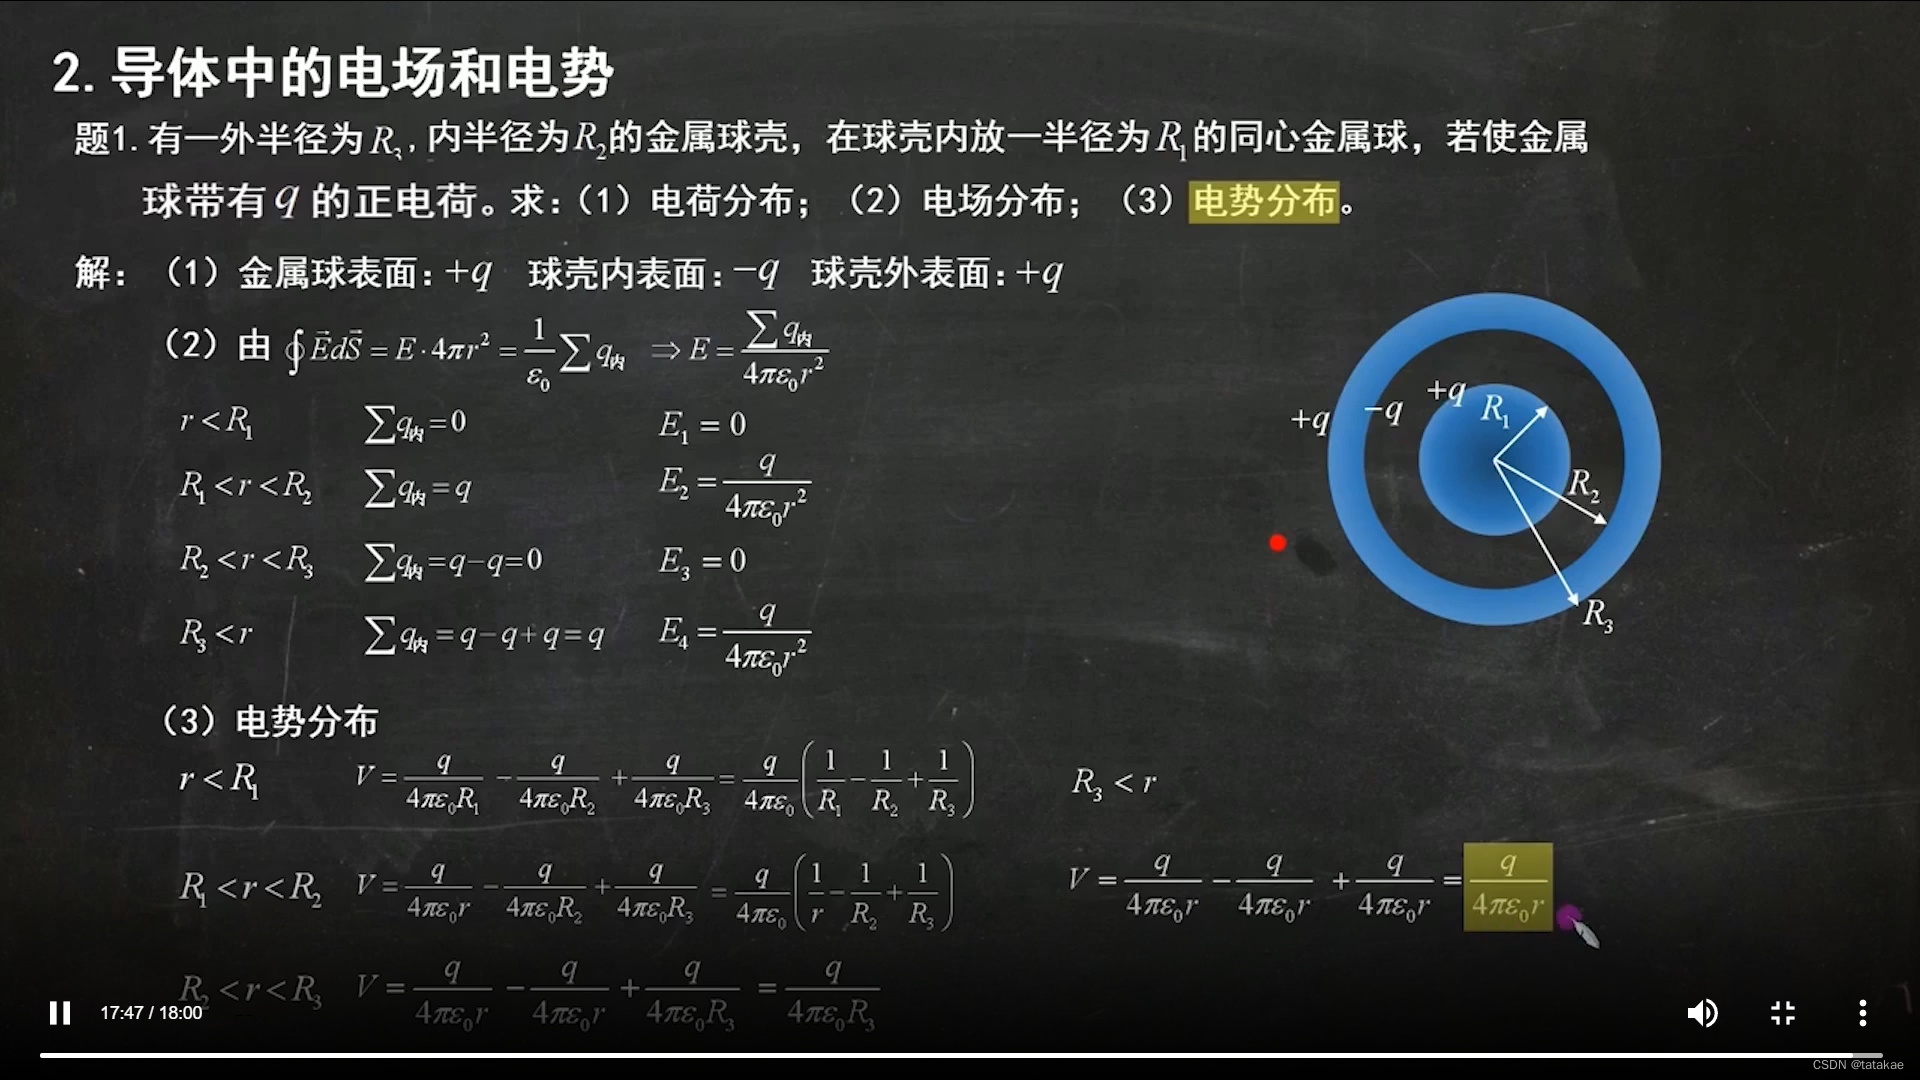 2. 导体中的电场和电势
题1. 有一外半径为 R₃, 内半径为R₂的金属球壳，在球壳内放一半径为R₁的同心金属球，若使金属
球带有 q 的正电荷。求：（1）电荷分布；（2）电场分布；（3）电势分布。
解：（1）金属球表面：+q 球壳内表面：−q 球壳外表面：+q
（2）由 ∮E⃗dS⃗ = E·4πr² = 1/ε₀ ∑q内 ⇒ E = ∑q内/4πε₀r²
r < R₁ ∑q内 = 0 E₁ = 0
R₁ < r < R₂ ∑q内 = q E₂ = q/4πε₀r²
R₂ < r < R₃ ∑q内 = q−q=0 E₃ = 0
R₃ < r ∑q内 = q−q+q = q E₄ = q/4πε₀r²
+q −q +q R₁
R₂
R₃
（3）电势分布
r < R₁ V = q/4πε₀R₁ − q/4πε₀R₂ + q/4πε₀R₃ = q/4πε₀ (1/R₁ − 1/R₂ + 1/R₃)
R₁ < r < R₂ V = q/4πε₀r − q/4πε₀R₂ + q/4πε₀R₃ = q/4πε₀ (1/r − 1/R₂ + 1/R₃)
R₂ < r < R₃ V = q/4πε₀r − q/4πε₀r + q/4πε₀R₃ = q/4πε₀R₃
R₃ < r
V = q/4πε₀r − q/4πε₀r + q/4πε₀r = q/4πε₀r
17:47 / 18:00
CSDN @tatakae